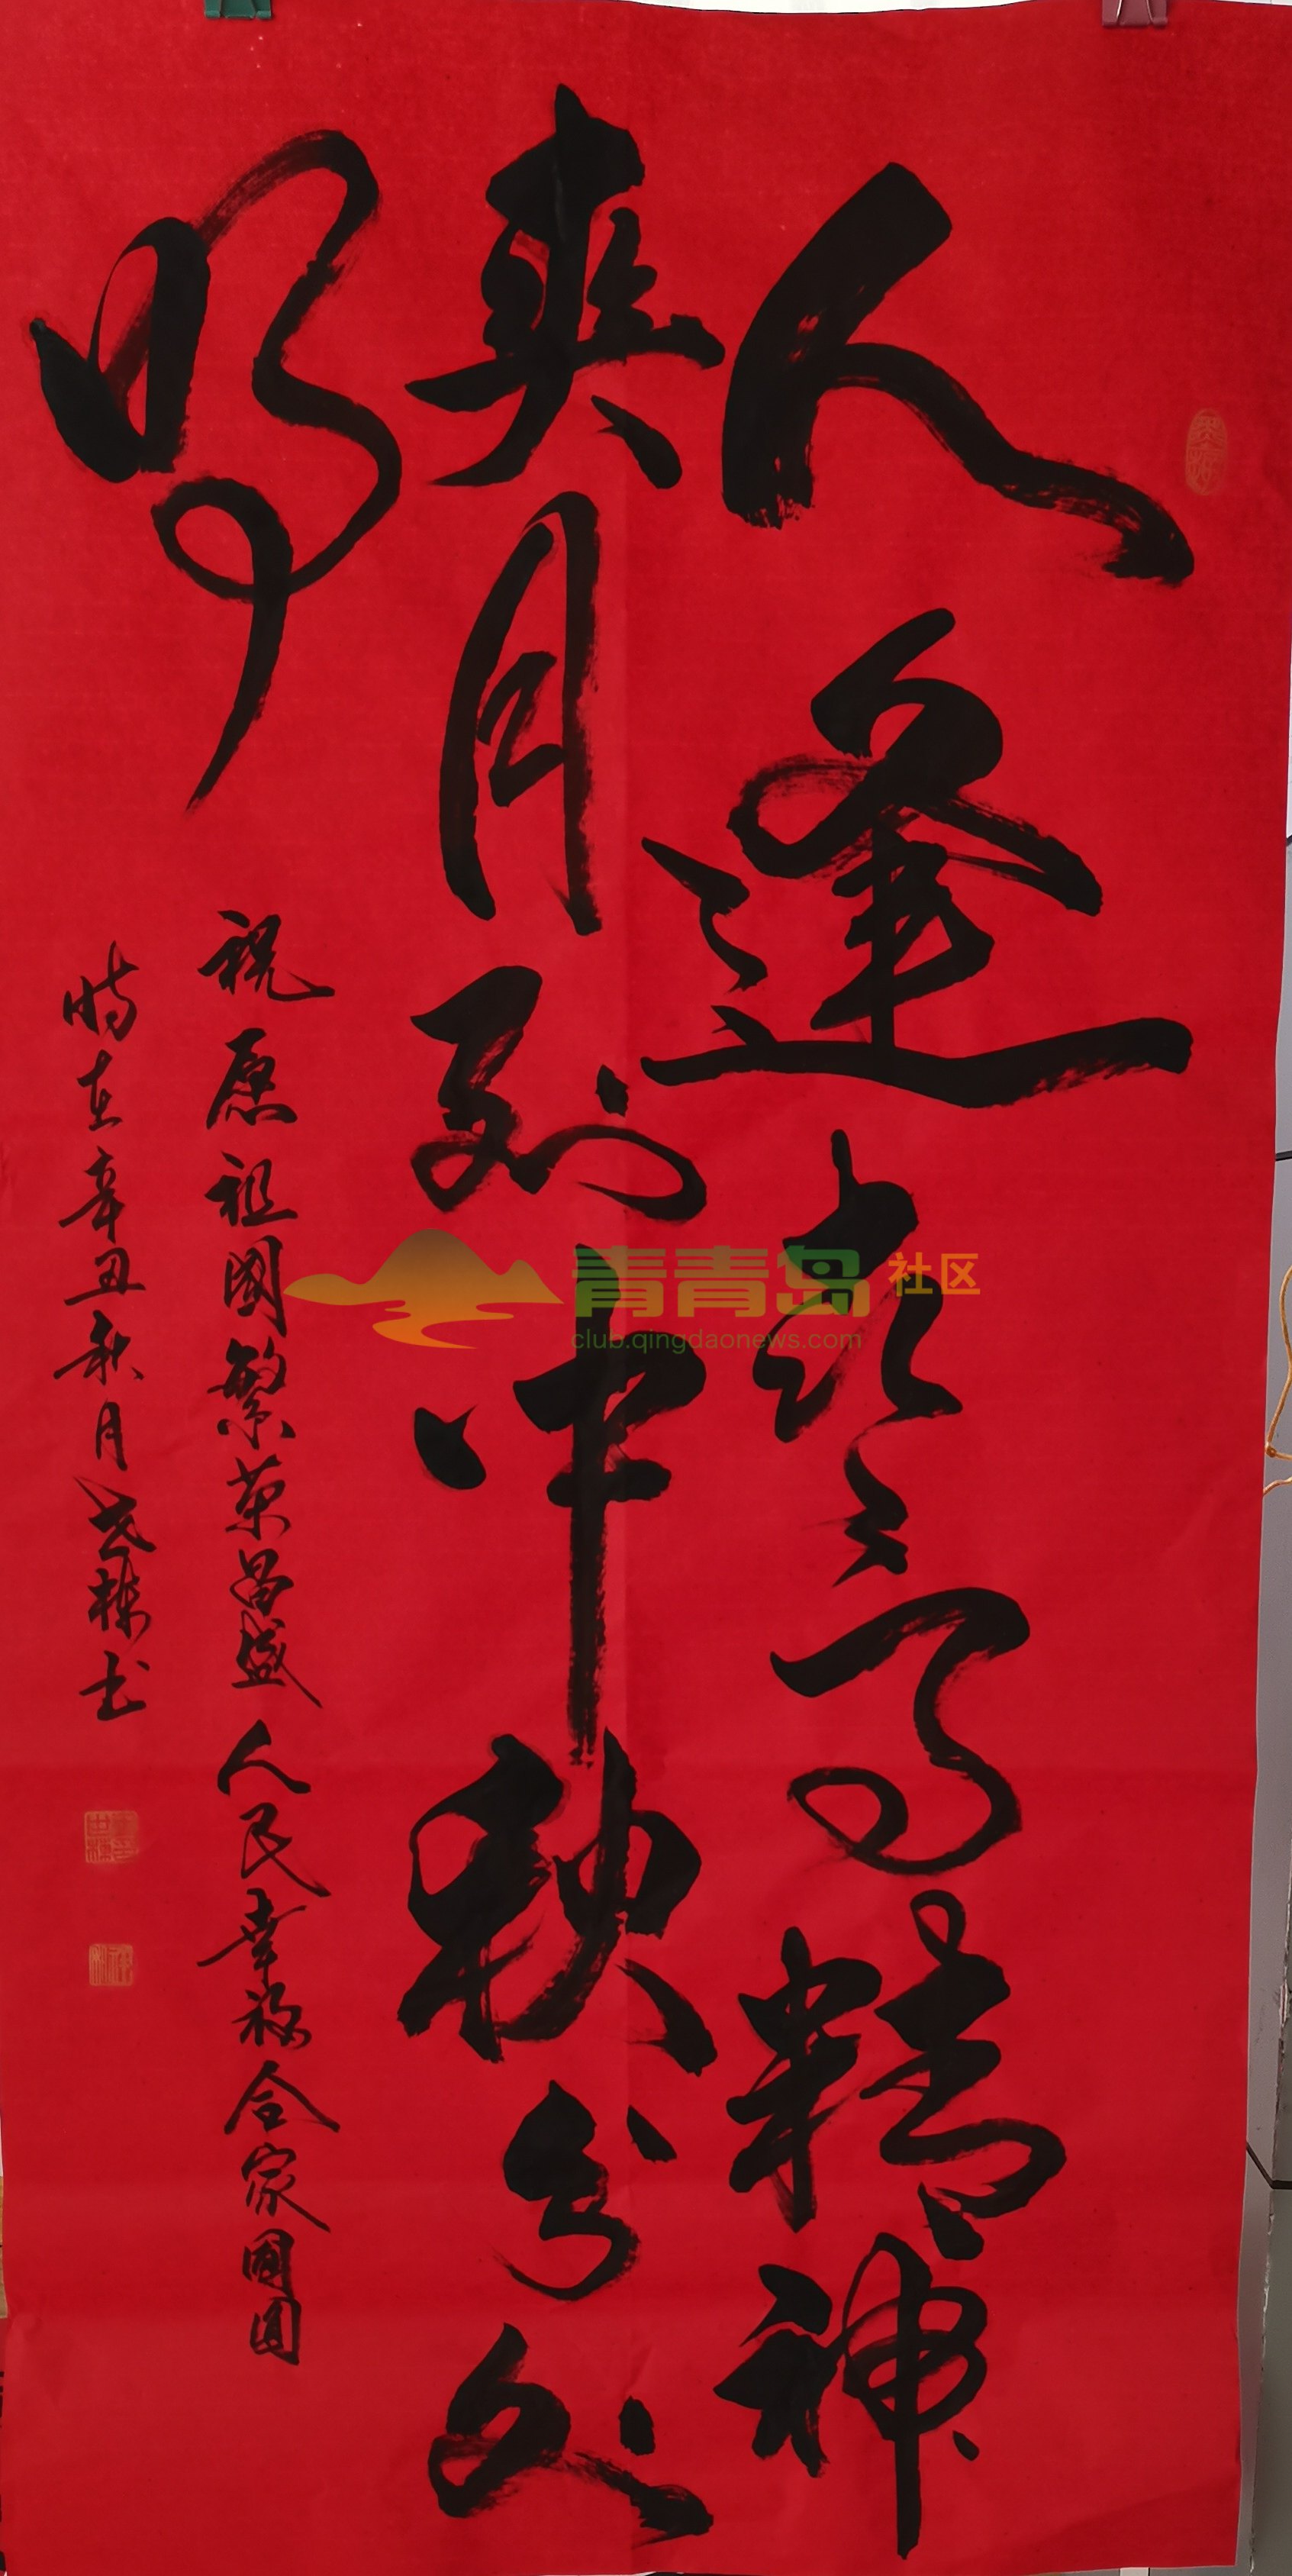 人逢喜事精神
爽月到中秋分外
明
祝愿祖國繁荣昌盛人民幸福合家團圆
时在辛丑秋月世栋书
青青岛社区
club.qingdaonews.com